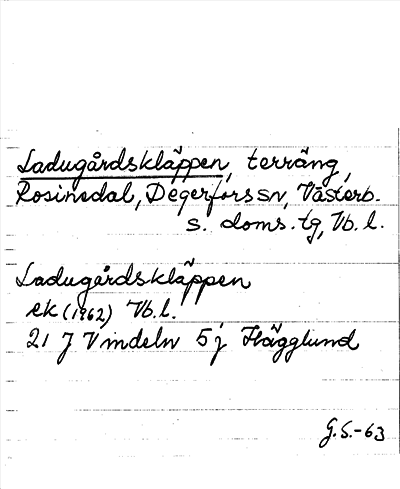 Ladugårdskläppen, terräng,
Rosinedal, Degerfors sn, Västerb.
s. doms. tg, Vb. l.
Ladugårdskläppen
ek (1962) Vb. l.
21 J Vindeln 5 j Hägglund
G.S.-63